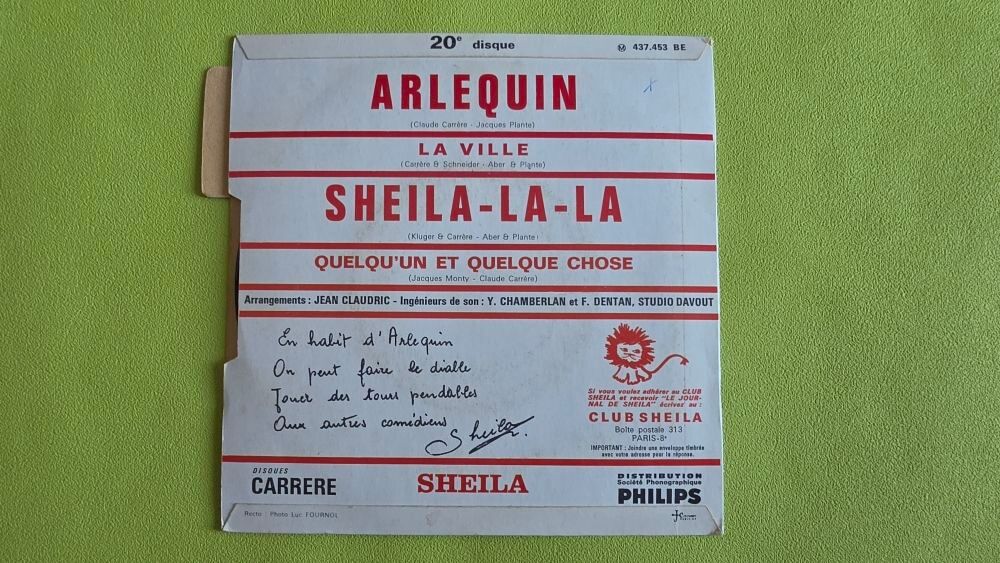 20e disque
Ⓜ 437.453 BE
ARLEQUIN
(Claude Carrère - Jacques Plante)
LA VILLE
(Carrère & Schneider - Aber & Plante)
SHEILA-LA-LA
(Kluger & Carrère - Aber & Plante)
QUELQU'UN ET QUELQUE CHOSE
(Jacques Monty - Claude Carrère)
Arrangements : JEAN CLAUDRIC - Ingénieurs de son : Y. CHAMBERLAN et F. DENTAN, STUDIO DAVOUT
En habit d'Arlequin
On peut faire le diable
Jouer des tours pendables
Aux autres comédiens
Sheila.
Si vous voulez adhérer au CLUB
SHEILA et recevoir "LE JOUR-
NAL DE SHEILA" écrivez au :
CLUB SHEILA
Boîte postale 313
PARIS-8e
IMPORTANT : Joindre une enveloppe timbrée
avec votre adresse pour la réponse.
DISQUES
CARRERE
SHEILA
DISTRIBUTION
Société Phonographique
PHILIPS
Recto : Photo Luc FOURNOL